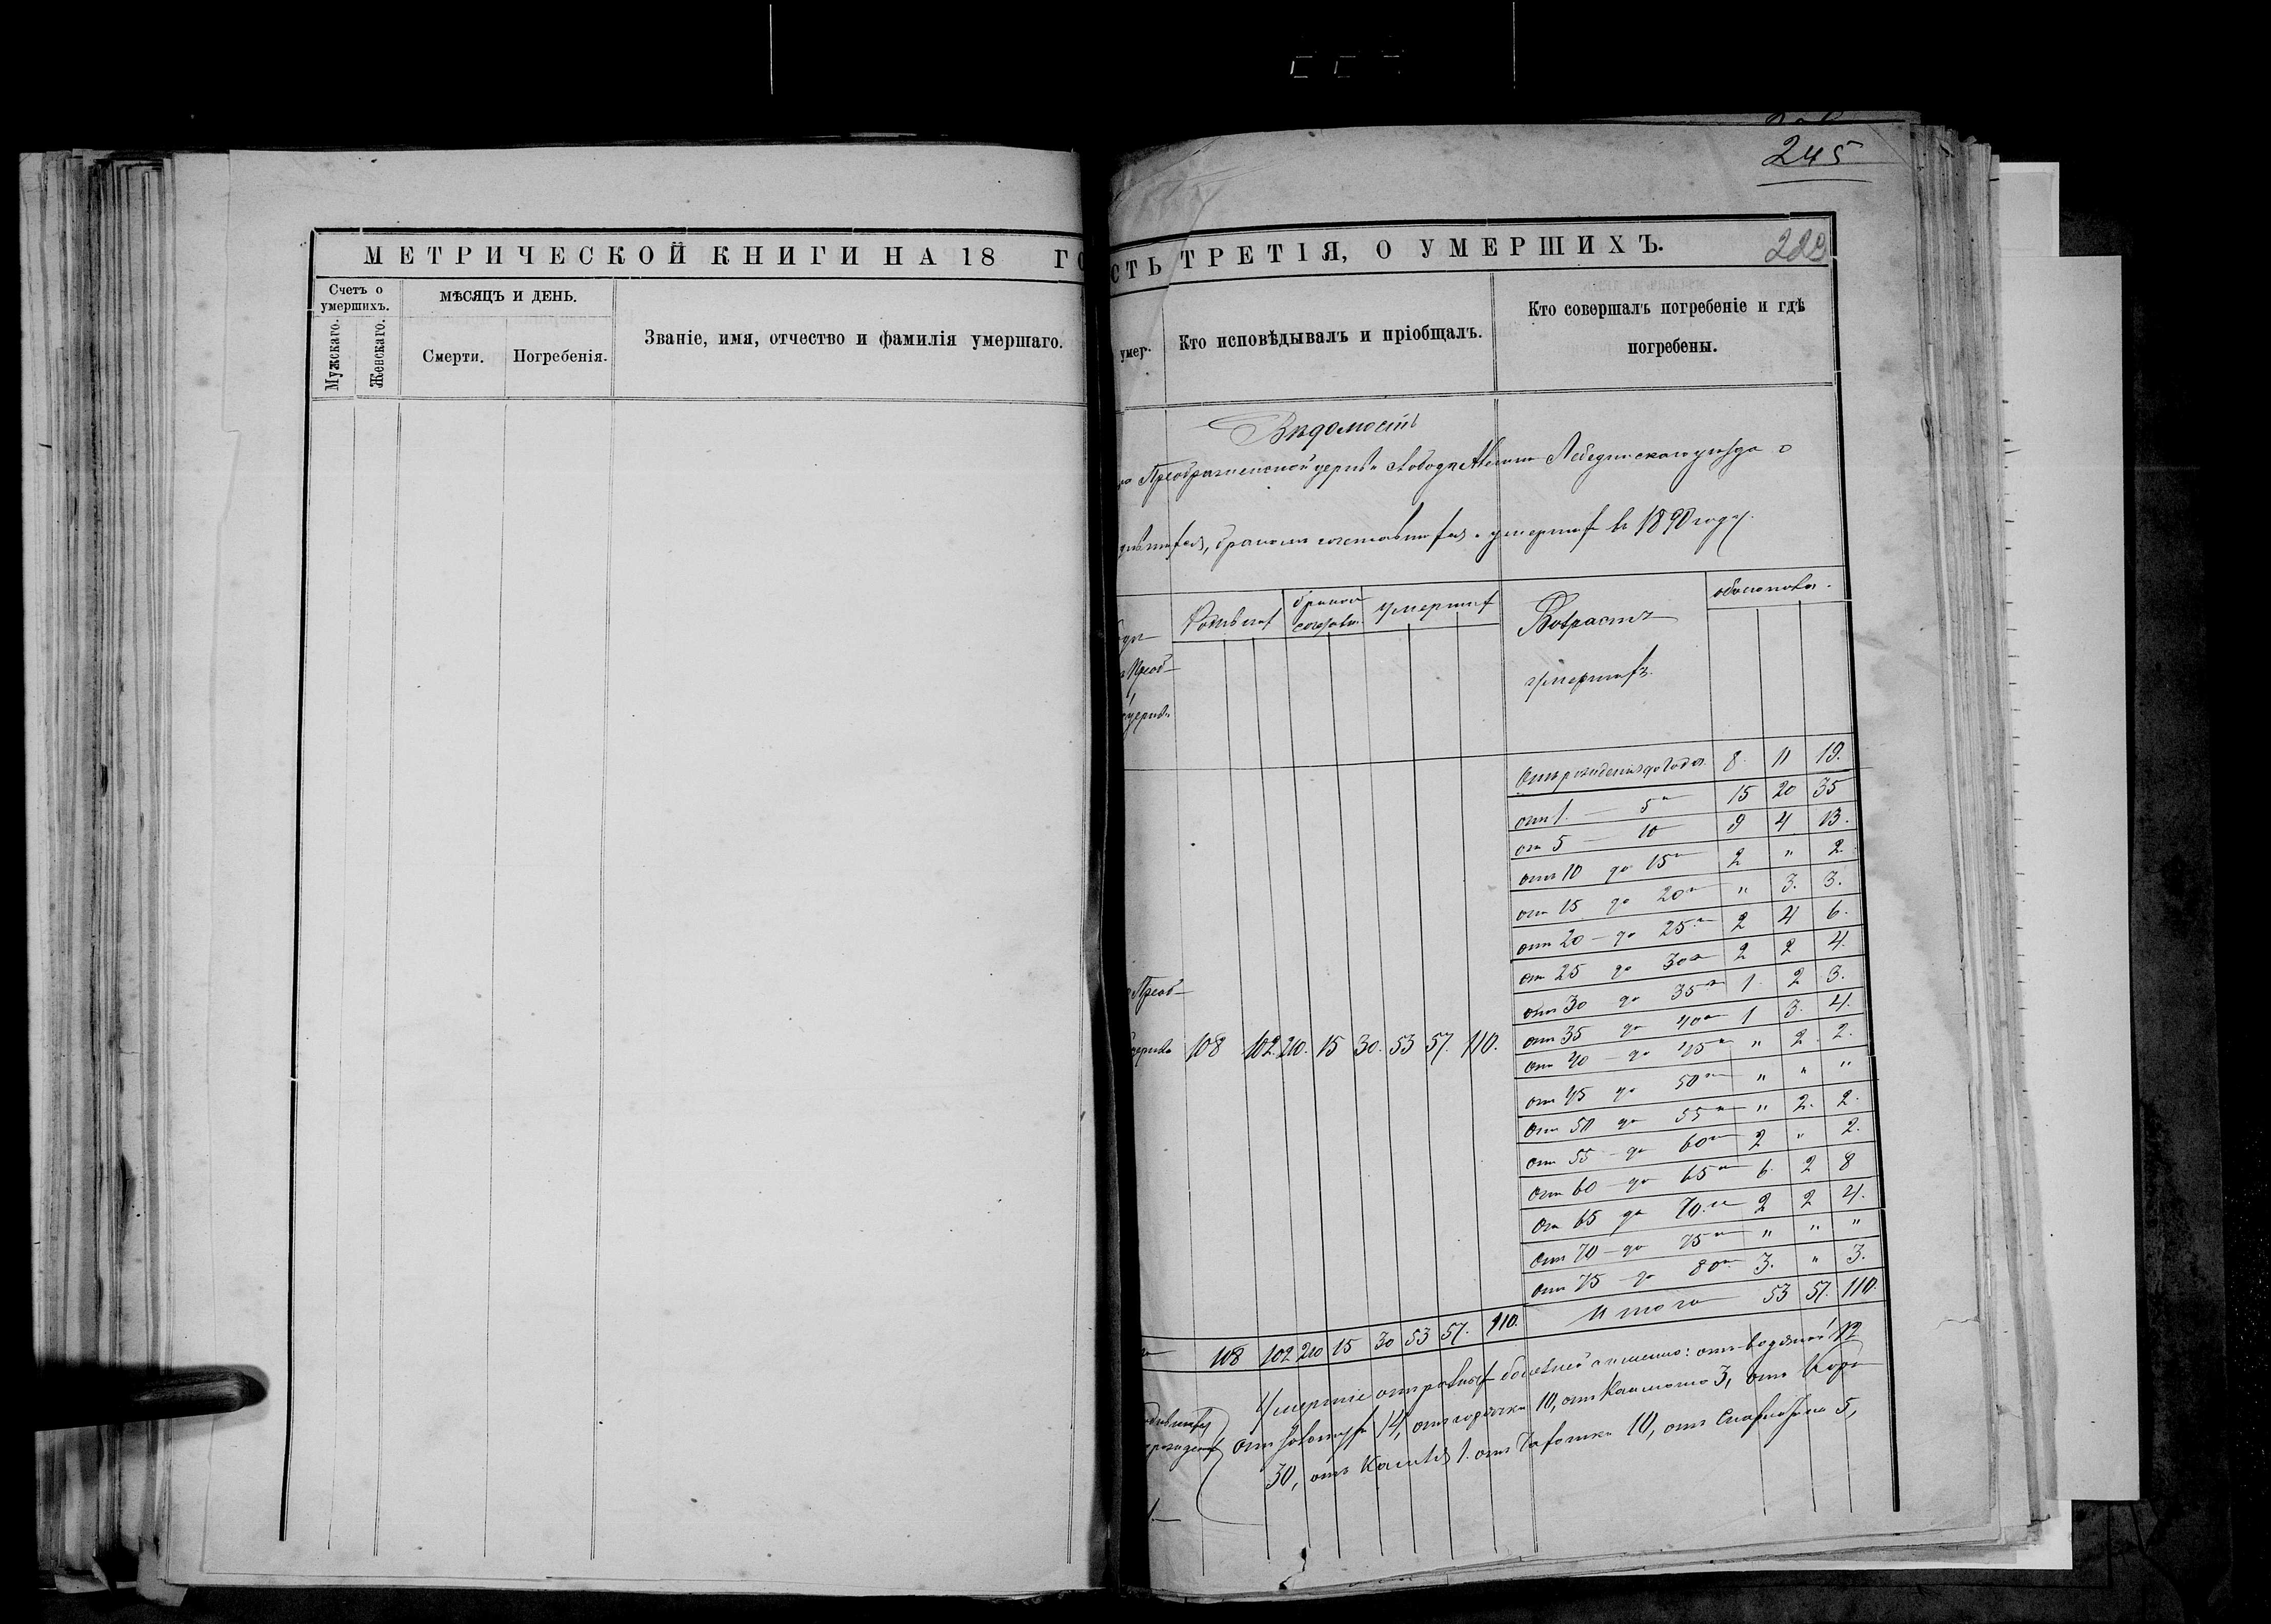 245
МЕТРИЧЕСКОЙ КНИГИ НА 18 ГО
СТЬ ТРЕТІЯ, О УМЕРШИХЪ.
223
Счетъ о умершихъ.
Мужскаго.
Женскаго.
МѢСЯЦЪ И ДЕНЬ.
Смерти.
Погребенія.
Званіе, имя, отчество и фамилія умершаго.
умер.
Кто исповѣдывалъ и пріобщалъ.
Кто совершалъ погребеніе и гдѣ
погребены.
Вѣдомость
Преображенской церкви слободы Лебединскаго уѣзда о
бракомъ сочетавшихся и умершихъ въ 1890 году.
Родившихъ
бракомъ сочетав.
умершихъ
Возрастъ
умершихъ.
обоего пола.
Преоб-
церкви
Отъ рожденія до года 8. 11 19.
отъ 1. — 5 15 20 35
отъ 5 — 10 9 4 13.
отъ 10 до 15 2 " 2.
отъ 15 до 20 " 3. 3.
отъ 20 — до 25 2 4 6.
отъ 25 до 30 2 2 4.
отъ 30 до 35 1. 2 3.
отъ 35 до 40 1 3. 4.
отъ 40 — до 45 " 2. 2.
отъ 45 до 50 " " "
отъ 50 до 55 " 2. 2.
отъ 55 — до 60 2 " 2.
отъ 60 — до 65 6. 2 8
отъ 65 до 70 2 2 4.
отъ 70 — до 75 " " "
отъ 75 — до 80 3. " 3.
Преоб-
церкви 108 102 210. 15 30. 53 57. 110.
Итого 53 57. 110.
108 102 210 15 30 53 57. 110.
Умершіе отъ разныхъ болѣзней а именно: отъ водяной 12
отъ 14, отъ горячки 10, отъ Кашлю 3, отъ Кори
30, отъ 1. отъ Чахотки 10, отъ 5,